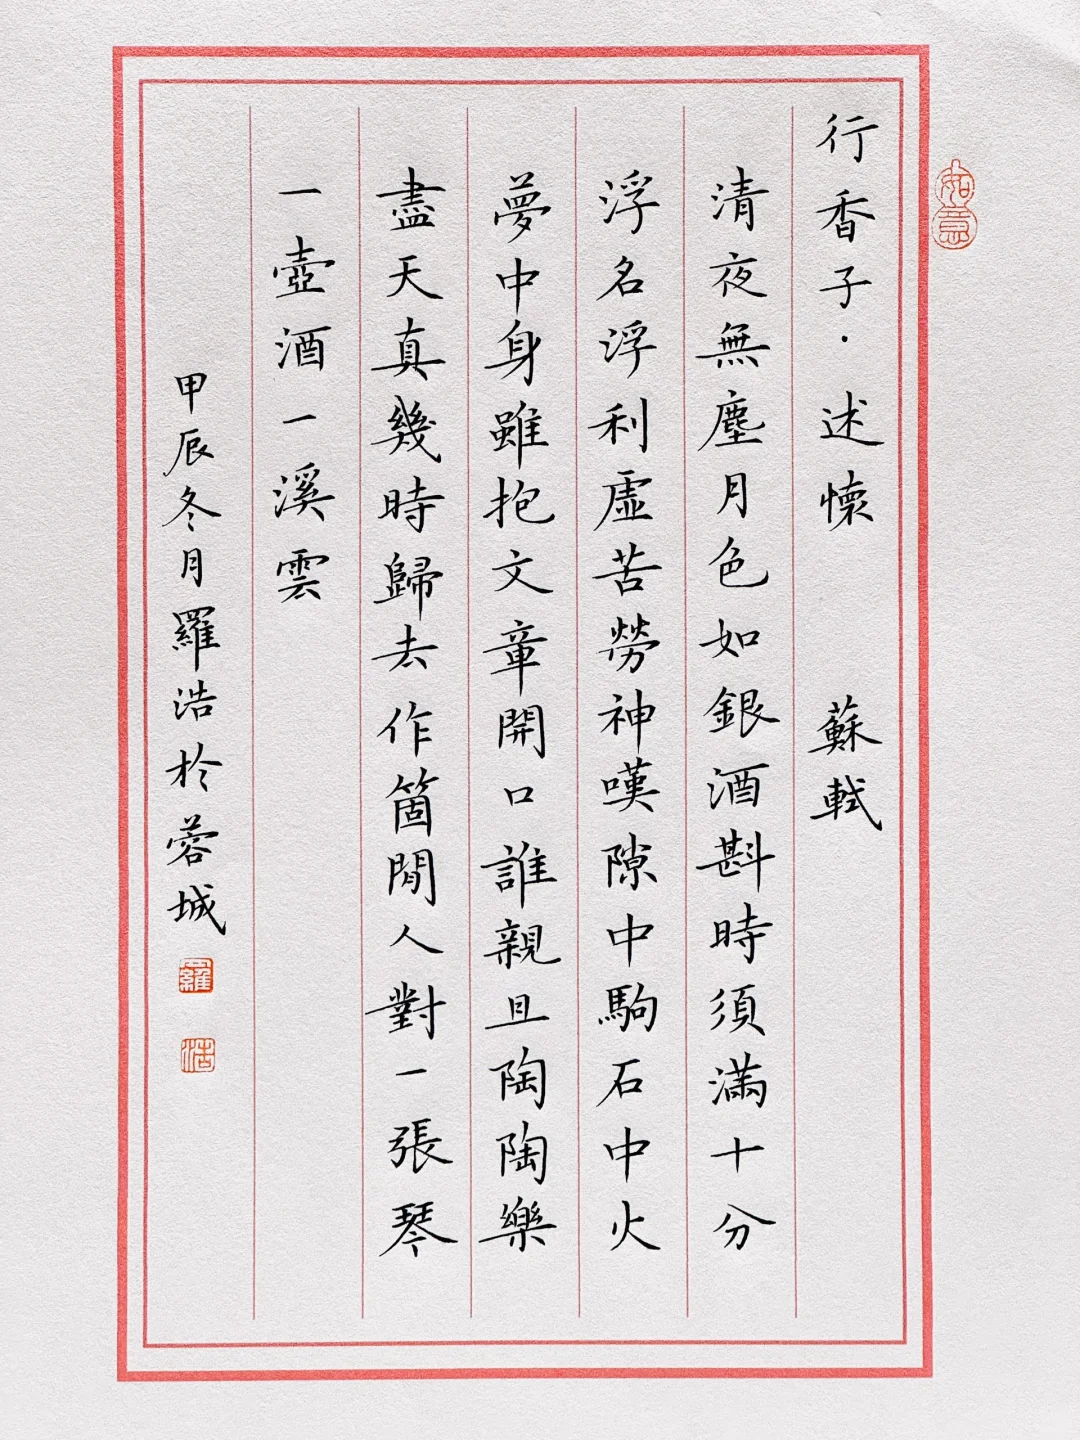 行香子·述懷 蘇軾
清夜無塵月色如銀酒斟時須滿十分
浮名浮利虛苦勞神嘆隙中駒石中火
夢中身雖抱文章開口誰親且陶陶樂
盡天真幾時歸去作箇閒人對一張琴
一壺酒一溪雲
甲辰冬月羅浩於蓉城
羅
浩
如意